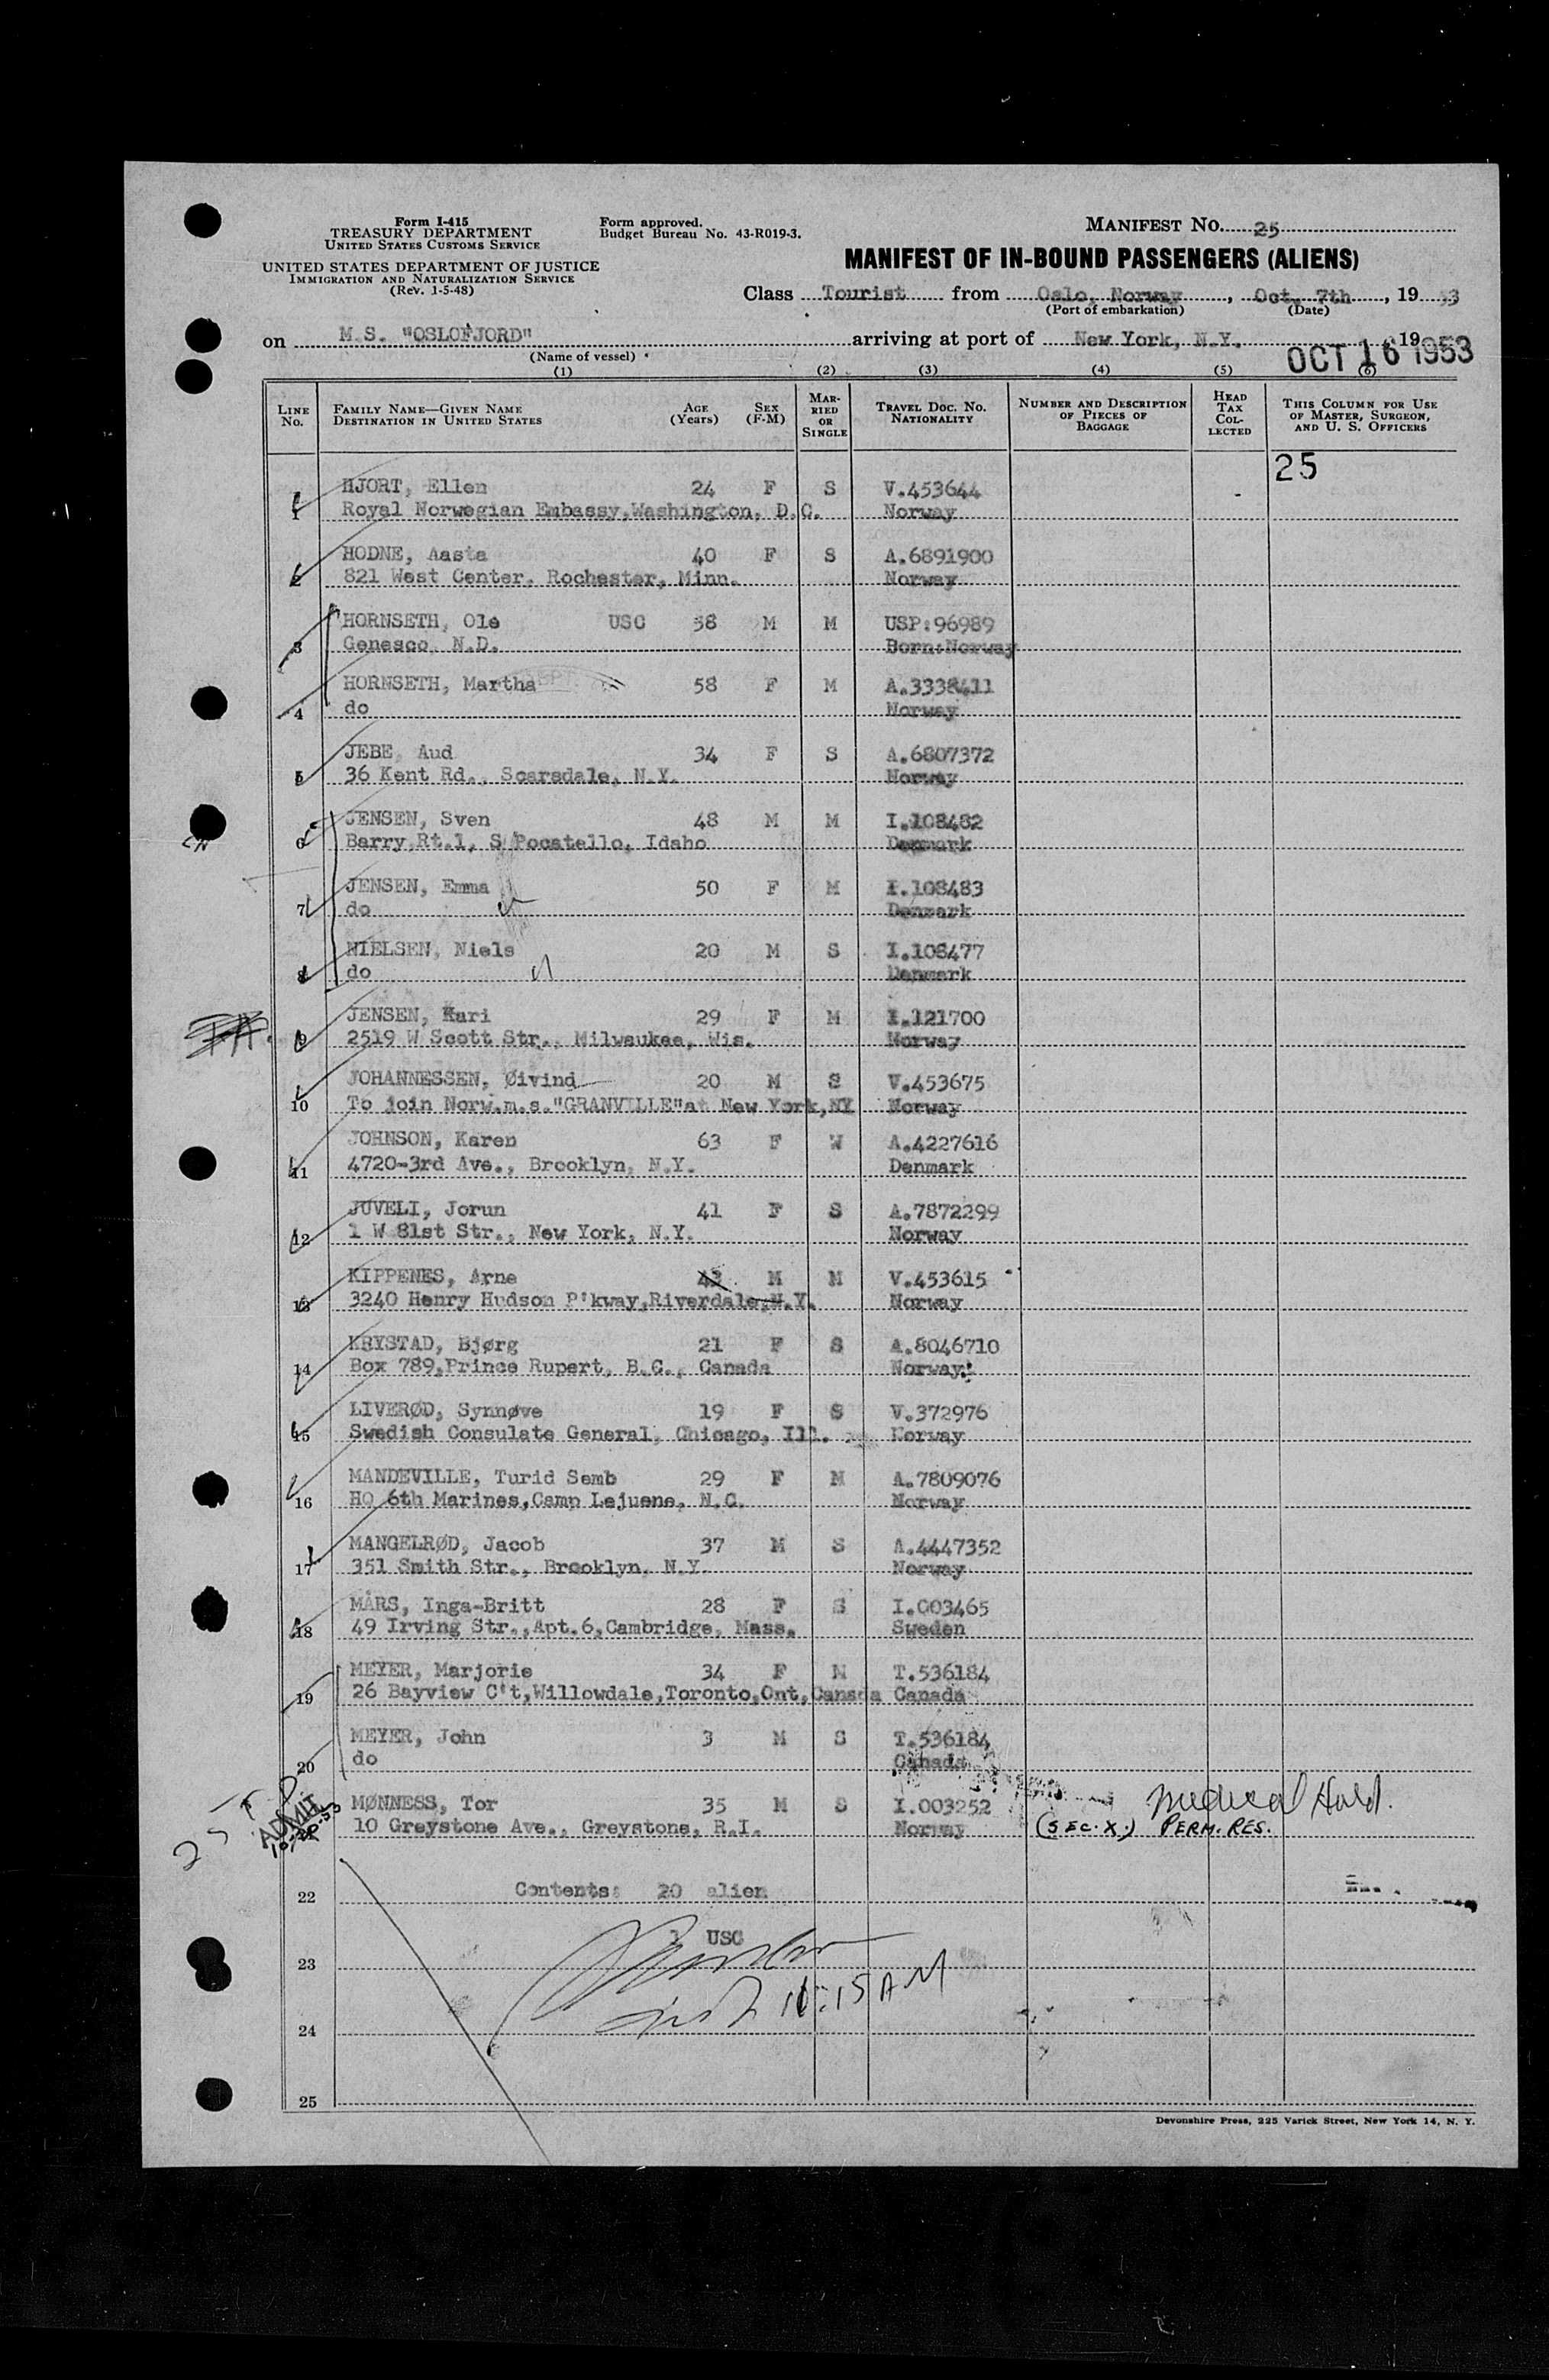 Form I-415
TREASURY DEPARTMENT
UNITED STATES CUSTOMS SERVICE
UNITED STATES DEPARTMENT OF JUSTICE
IMMIGRATION AND NATURALIZATION SERVICE
(Rev. 1-5-48)
Form approved.
Budget Bureau No. 43-R019-3.
MANIFEST No. 25
MANIFEST OF IN-BOUND PASSENGERS (ALIENS)
Class Tourist from Oslo, Norway, Oct. 7th, 19 53
(Port of embarkation) (Date)
on M.S. "OSLOFJORD" arriving at port of New York, N.Y. 19
(Name of vessel) OCT 16 1953
(1) (2) (3) (4) (5) (6)
LINE No. FAMILY NAME—GIVEN NAME DESTINATION IN UNITED STATES AGE (Years) SEX (F-M) MARRIED OR SINGLE TRAVEL DOC. NO. NATIONALITY NUMBER AND DESCRIPTION OF PIECES OF BAGGAGE HEAD TAX COLLECTED THIS COLUMN FOR USE OF MASTER, SURGEON, AND U. S. OFFICERS
25
HJORT, Ellen 24 F S V.453644
1 Royal Norwegian Embassy,Washington, D.C. Norway
HODNE, Aasta 40 F S A.6891900
2 821 West Center, Rochester, Minn. Norway
HORNSETH, Ole USC 58 M M USP:96989
3 Genesco, N.D. Born:Norway
HORNSETH, Martha 58 F M A.3338411
4 do Norway
JEBE, Aud 34 F S A.6807372
5 36 Kent Rd., Scarsdale, N.Y. Norway
JENSEN, Sven 48 M M I.108482
6 Barry,Rt.1, S Pocatello, Idaho Denmark
JENSEN, Emma 50 F M I.108483
7 do Denmark
NIELSEN, Niels 20 M S I.108477
8 do Denmark
JENSEN, Kari 29 F M I.121700
9 2519 W Scott Str., Milwaukee, Wis. Norway
JOHANNESSEN, Øivind 20 M S V.453675
10 To join Norw.m.s."GRANVILLE"at New York,NY Norway
JOHNSON, Karen 63 F W A.4227616
11 4720-3rd Ave., Brooklyn, N.Y. Denmark
JUVELI, Jorun 41 F S A.7872299
12 1 W 81st Str., New York, N.Y. Norway
KIPPENES, Arne 43 M M V.453615
13 3240 Henry Hudson P'kway,Riverdale,N.Y. Norway
KRYSTAD, Bjørg 21 F S A.8046710
14 Box 789,Prince Rupert, B.C., Canada Norway
LIVERØD, Synnøve 19 F S V.372976
15 Swedish Consulate General, Chicago, Ill. Norway
MANDEVILLE, Turid Semb 29 F M A.7809076
16 HQ 6th Marines,Camp Lejuene, N.C. Norway
MANGELRØD, Jacob 37 M S A.4447352
17 351 Smith Str., Brooklyn, N.Y. Norway
MÅRS, Inga-Britt 28 F S I.003465
18 49 Irving Str.,Apt.6,Cambridge, Mass. Sweden
MEYER, Marjorie 34 F M T.536184
19 26 Bayview C't,Willowdale,Toronto,Ont,Canada Canada
MEYER, John 3 M S T.536184
20 do Canada
MØNNESS, Tor 35 M S I.003252 Medical Hold.
ADMIT 10-20-53 10 Greystone Ave., Greystone, R.I. Norway (SEC.X.) PERM. RES.
22 Contents: 20 alien
1 USC
23
11:15 AM
24
25
Devonshire Press, 225 Varick Street, New York 14, N. Y.